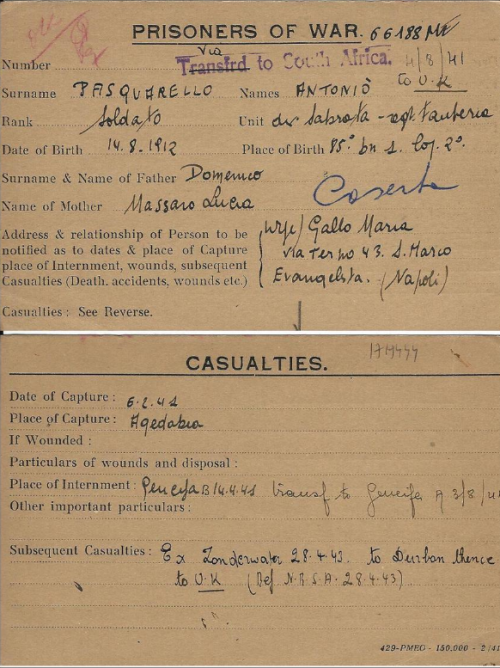 PRISONERS OF WAR. 66188 ME
via
Number Transfrd to South Africa. 4/8/41
to U.K
Surname PASQUARELLO Names ANTONIÒ
Rank Soldato Unit div Sabrata - regt. fanteria
Date of Birth 14.8.1912 Place of Birth 85° bn 1. Coy. 2°.
Surname & Name of Father Domenico
Caserta
Name of Mother Massaro Lucia
Address & relationship of Person to be
notified as to dates & place of Capture
place of Internment, wounds, subsequent
Casualties (Death. accidents, wounds etc.)
(wife) Gallo Maria
via Terno 43. S. Marco
Evangelista. (Napoli)
Casualties: See Reverse.
17M444
CASUALTIES.
Date of Capture: 6.2.41
Place of Capture: Agedabia
If Wounded:
Particulars of wounds and disposal:
Place of Internment: Geneifa B 14.4.41 transf to Geneifa A 3/8/41
Other important particulars:
Subsequent Casualties: Ex Zonderwater 28.4.43. to Durban thence
to U.K (Ref N.R.S.A. 28.4.43)
429-PMEG - 150,000 - 2/41